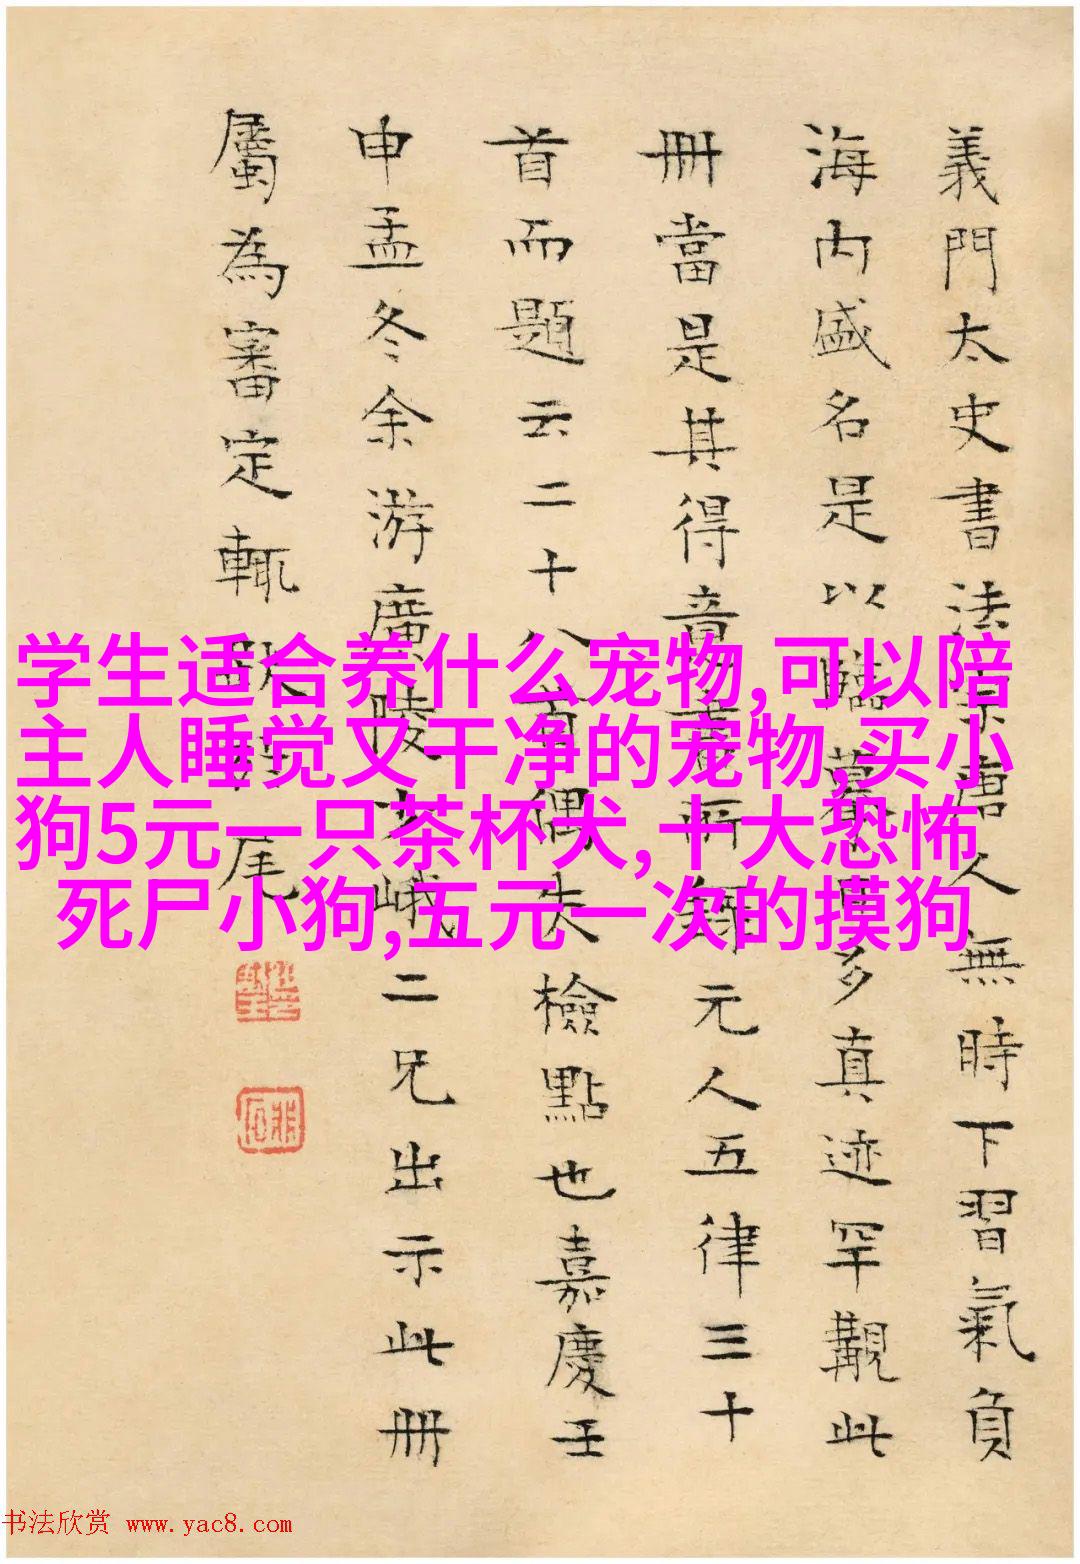 義門太史書法宗唐人無時下習氣負
海内盛名是以臨摹更多真迹罕覯此
冊當是其得意書所錄元人五律三十
首而題云二十八首偶失檢點也嘉慶壬
申孟冬余游廣陵少峨二兄出示此冊
屬為審定輒跋於尾
学生适合养什么宠物,可以陪
主人睡觉又干净的宠物,买小
狗5元一只茶杯犬,十大恐怖
死尸小狗,五元一次的摸狗
书法欣赏 www.yac8.com